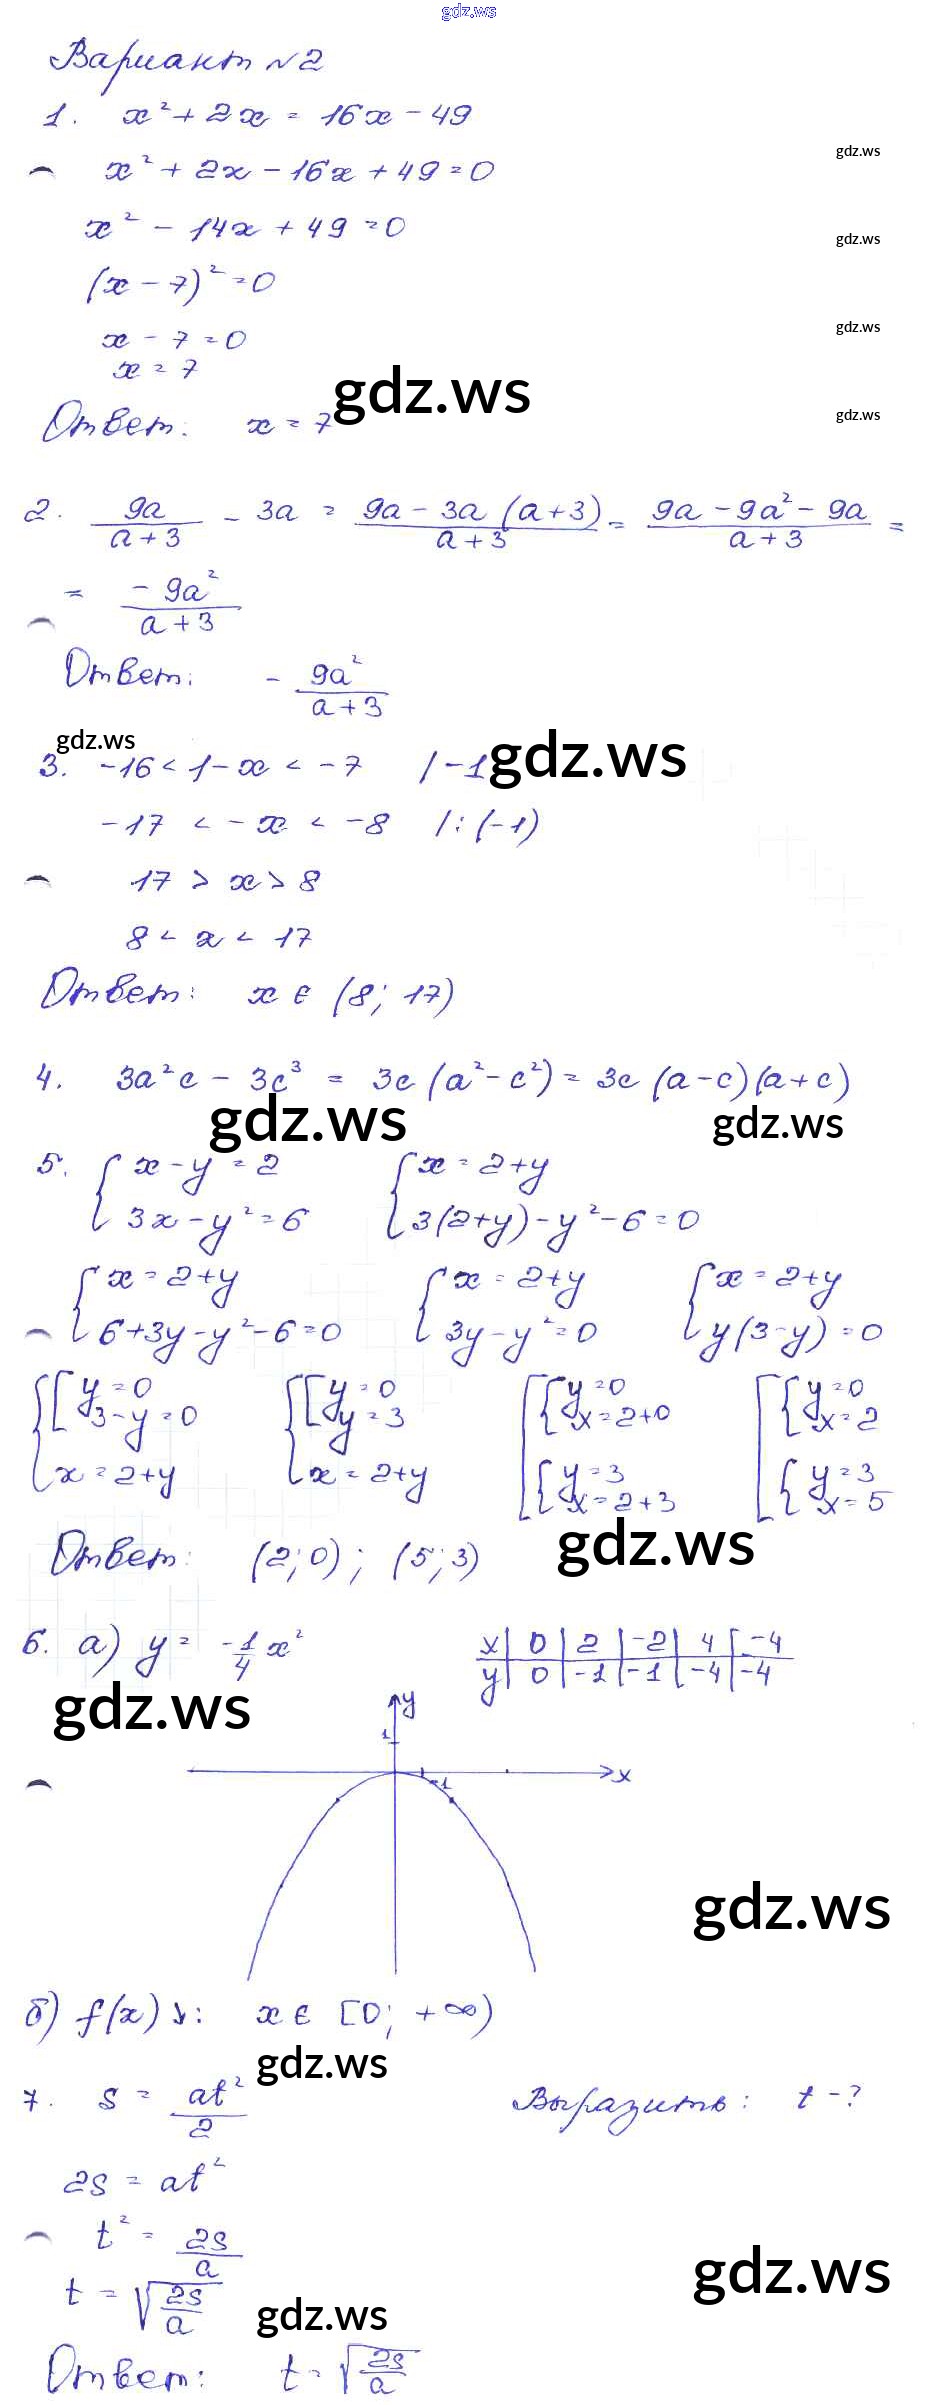 gdz.ws
Вариант №2
1. x² + 2x = 16x - 49
gdz.ws
x² + 2x - 16x + 49 = 0
x² - 14x + 49 = 0
gdz.ws
(x - 7)² = 0
x - 7 = 0
gdz.ws
x = 7
gdz.ws
Ответ: x = 7
gdz.ws
2. 9a/(a+3) - 3a = (9a - 3a(a+3))/(a+3) = (9a - 9a² - 9a)/(a+3) =
= (-9a²)/(a+3)
Ответ: - 9a²/(a+3)
gdz.ws
3. -16 < 1 - x < -7 / -1
gdz.ws
-17 < -x < -8 /: (-1)
17 > x > 8
8 < x < 17
Ответ: x ∈ (8; 17)
4. 3a²c - 3c³ = 3c(a² - c²) = 3c(a-c)(a+c)
gdz.ws gdz.ws
5. { x - y = 2 { x = 2+y
3x - y² = 6 3(2+y) - y² - 6 = 0
{ x = 2+y { x = 2+y { x = 2+y
6+3y-y²-6=0 3y-y²=0 y(3-y)=0
{ [ y=0 { [ y=0 [ { y=0 [ { y=0
3-y=0 y=3 x=2+0 x=2
x=2+y x=2+y { y=3 { y=3
x=2+3 x=5
gdz.ws
Ответ: (2;0); (5;3)
6. а) y = -1/4 x²
x | 0 | 2 | -2 | 4 | -4
y | 0 | -1 | -1 | -4 | -4
gdz.ws
y
1
1
x
gdz.ws
б) f(x) ↘: x ∈ [0; +∞)
gdz.ws
7. s = at²/2 Выразить: t - ?
2s = at²
t² = 2s/a
gdz.ws
t = √(2s/a)
gdz.ws
Ответ: t = √(2s/a)